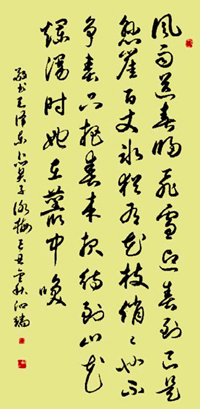 風雨送春歸飛雪迎春到已是
懸崖百丈冰猶有花枝俏俏也不
争春只把春来報待到山花
爛漫時她在叢中笑
敬书毛泽东卜算子咏梅己丑